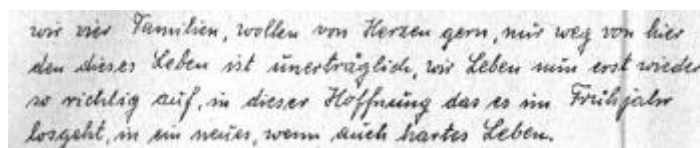 wir vier Familien, wollen von Herzen gern, nur weg von hier
den dieses Leben ist unerträglich, wir Leben nun erst wieder
so richtig auf, in dieser Hoffnung das es im Frühjahr
losgeht, in ein neues, wenn auch hartes Leben.